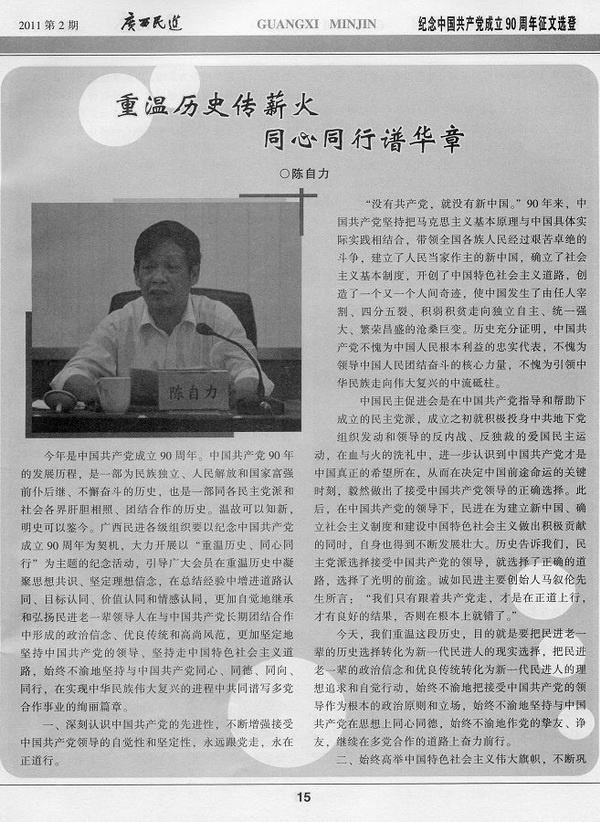 2011 第 2 期
广西民进
GUANGXI MINJIN
纪念中国共产党成立 90 周年征文选登
重温历史传薪火
同心同行谱华章
○陈自力
陈自力
今年是中国共产党成立 90 周年。中国共产党 90 年
的发展历程，是一部为民族独立、人民解放和国家富强
前仆后继、不懈奋斗的历史，也是一部同各民主党派和
社会各界肝胆相照、团结合作的历史。温故可以知新，
明史可以鉴今。广西民进各级组织要以纪念中国共产党
成立 90 周年为契机，大力开展以“重温历史、同心同
行”为主题的纪念活动，引导广大会员在重温历史中凝
聚思想共识、坚定理想信念，在总结经验中增进道路认
同、目标认同、价值认同和情感认同，更加自觉地继承
和弘扬民进老一辈领导人在与中国共产党长期团结合作
中形成的政治信念、优良传统和高尚风范，更加坚定地
坚持中国共产党的领导、坚持走中国特色社会主义道
路，始终不渝地坚持与中国共产党同心、同德、同向、
同行，在实现中华民族伟大复兴的进程中共同谱写多党
合作事业的绚丽篇章。
一、深刻认识中国共产党的先进性，不断增强接受
中国共产党领导的自觉性和坚定性，永远跟党走，永在
正道行。
“没有共产党，就没有新中国。”90 年来，中
国共产党坚持把马克思主义基本原理与中国具体实
际实践相结合，带领全国各族人民经过艰苦卓绝的
斗争，建立了人民当家作主的新中国，确立了社会
主义基本制度，开创了中国特色社会主义道路，创
造了一个又一个人间奇迹，使中国发生了由任人宰
割、四分五裂、积弱积贫走向独立自主、统一强
大、繁荣昌盛的沧桑巨变。历史充分证明，中国共
产党不愧为中国人民根本利益的忠实代表，不愧为
领导中国人民团结奋斗的核心力量，不愧为引领中
华民族走向伟大复兴的中流砥柱。
中国民主促进会是在中国共产党指导和帮助下
成立的民主党派，成立之初就积极投身中共地下党
组织发动和领导的反内战、反独裁的爱国民主运
动，在血与火的洗礼中，进一步认识到中国共产党才是
中国真正的希望所在，从而在决定中国前途命运的关键
时刻，毅然做出了接受中国共产党领导的正确选择。此
后，在中国共产党的领导下，民进在为建立新中国、确
立社会主义制度和建设中国特色社会主义做出积极贡献
的同时，自身也得到不断发展壮大。历史告诉我们，民
主党派选择接受中国共产党的领导，就选择了正确的道
路，选择了光明的前途。诚如民进主要创始人马叙伦先
生所言：“我们只有跟着共产党走，才是在正道上行，
才有良好的结果，否则在根本上就错了。”
今天，我们重温这段历史，目的就是要把民进老一
辈的历史选择转化为新一代民进人的现实选择，把民进
老一辈的政治信念和优良传统转化为新一代民进人的理
想追求和自觉行动，始终不渝地把接受中国共产党的领
导作为根本的政治原则和立场，始终不渝地坚持与中国
共产党在思想上同心同德，始终不渝地作党的挚友、诤
友，继续在多党合作的道路上奋力前行。
二、始终高举中国特色社会主义伟大旗帜，不断巩
15